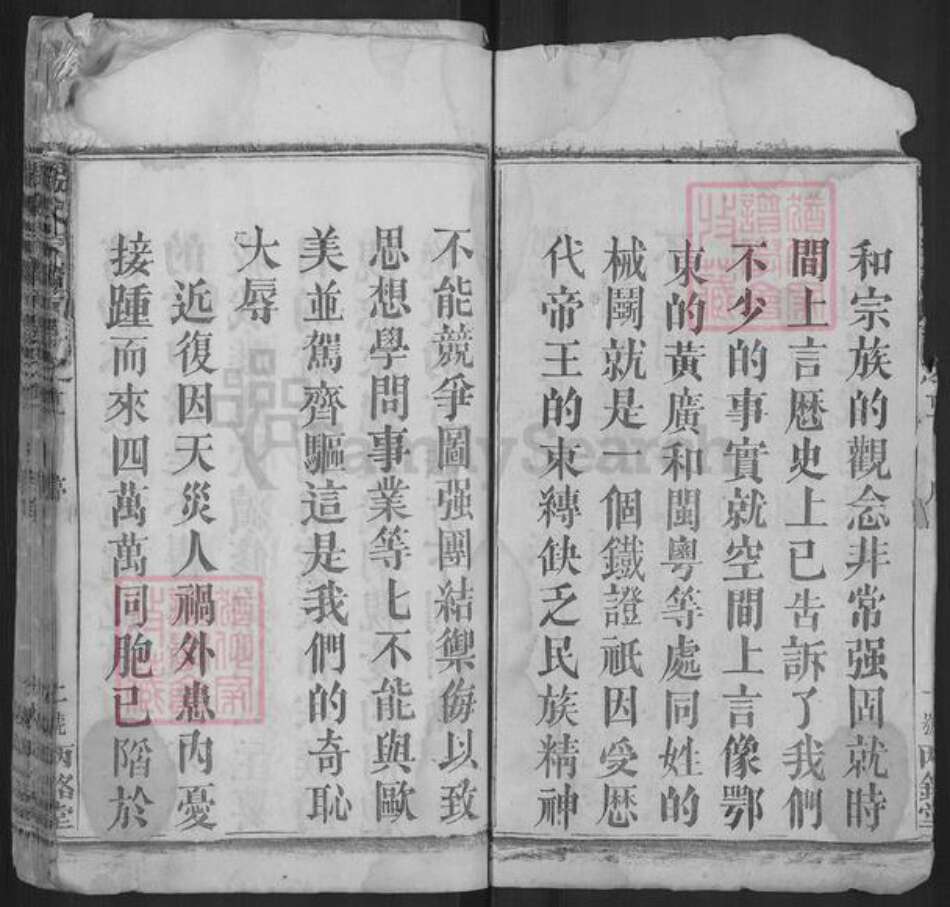 和宗族的觀念非常强固就時
間上言歷史上已告訴了我們
不少的事實就空間上言像鄂
東的黃廣和閩粵等處同姓的
械鬭就是一個鐵證祇因受歷
代帝王的束縛缺乏民族精神
不能競爭圖强團結禦侮以致
思想學問事業等七不能與歐
美並駕齊驅這是我們的奇恥
大辱
近復因天災人禍外患內憂
接踵而來四萬萬同胞已陷於
FamilySearch